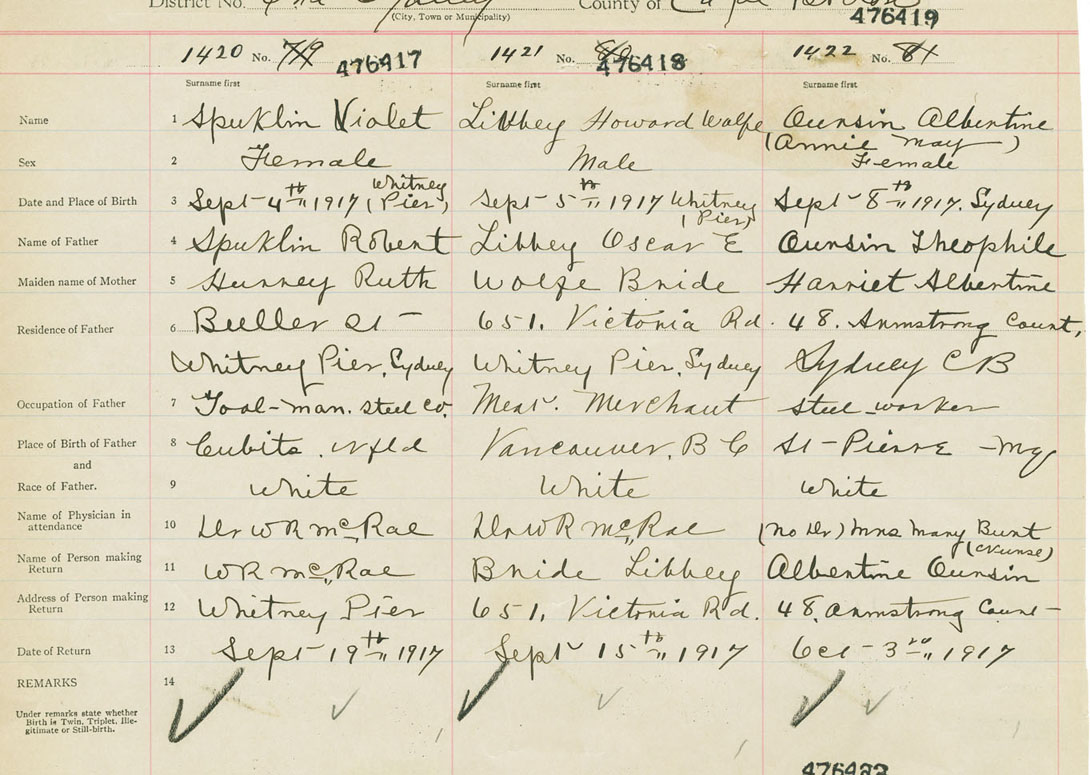 District No. Sydney County of Cape Breton
(City, Town or Municipality)
476419
1420 No. 79 476417 1421 80 No. 476418 1422 No. 81
Surname first Surname first Surname first
Name 1 Spuklin Violet Libbey Howard Wolfe Ounsin Albentine
(Annie May)
Sex 2 Female Male Female
Whitney
Date and Place of Birth 3 Sept 4th 1917 (Pier) Sept 5th 1917 Whitney Sept 8th 1917. Sydney
(Pier)
Name of Father 4 Spuklin Robent Libbey Oscar E Ounsin Theophile
Maiden name of Mother 5 Hunney Ruth Wolfe Bride Hanniet Albentine
Residence of Father 6 Buller St 651. Victonia Rd. 48. Anmstrong Count,
Whitney Pier, Sydney Whitney Pier, Sydney Sydney C B
Occupation of Father 7 Tool-man. steel co. Meat. Merchant steel worker
Place of Birth of Father 8 Cubits. Nfld Vancouver, B C St-Pienne -Mq
and
Race of Father. 9 White White White
Name of Physician in
attendance 10 Dr W R McRae Dr W R McRae (no Dr) Mrs Many Bunt
(Nunse)
Name of Person making
Return 11 W R McRae Bride Libbey Albentine Ounsin
Address of Person making
Return 12 Whitney Pier 651, Victonia Rd. 48, Anmstrong Count
Date of Return 13 Sept 19th 1917 Sept 15th 1917 Oct 3rd 1917
REMARKS 14
Under remarks state whether
Birth is Twin, Triplet, Ille-
gitimate or Still-birth.